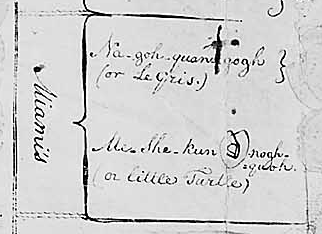 Miamis
Na-goh-quangogh
(or Le Gris.)
Me-She-kun nogh-
-quoh.
(or little Turtle)